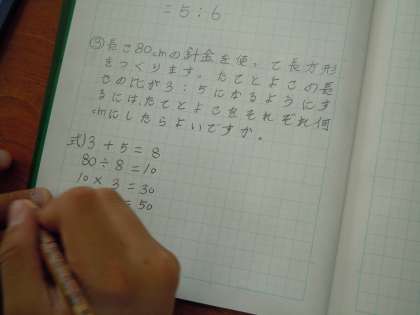 = 5 : 6
③長さ80cmの針金を使って長方形
をつくります。たてとよこの長
さの比が3:5になるようにす
るには、たてとよこをそれぞれ何
cmにしたらよいですか。
式)3 + 5 = 8
80 ÷ 8 = 10
10 × 3 = 30
= 50